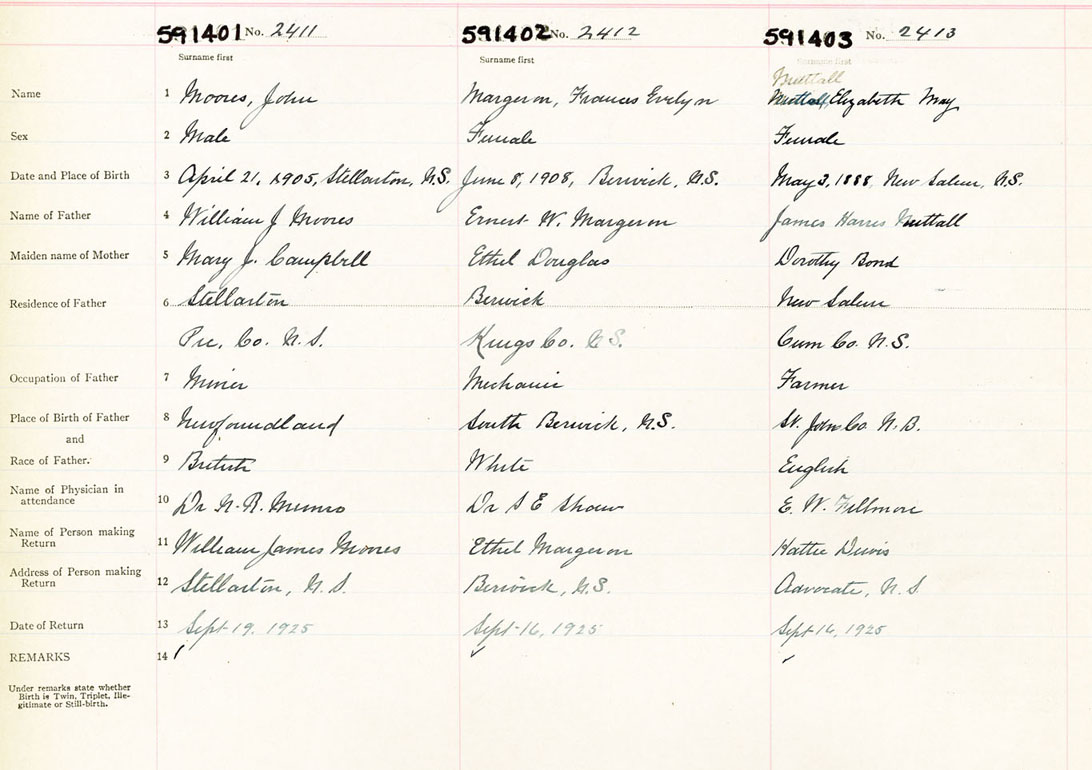 591401 No. 2411 591402 No. 2412 591403 No. 2413
Surname first Surname first Surname first
Nuttall
Name 1 Moores, John Margeson, Frances Evelyn Nuttall, Elizabeth May
Sex 2 Male Female Female
Date and Place of Birth 3 April 21, 1905, Stellarton, N.S. June 8, 1908, Berwick, N.S. May 3, 1888, New Salem, N.S.
Name of Father 4 William J Moores Ernest W. Margeson James Harris Nuttall
Maiden name of Mother 5 Mary J. Campbell Ethel Douglas Dorothy Bond
Residence of Father 6 Stellarton Berwick New Salem
Pic. Co. N.S. Kings Co. N.S. Cum Co. N.S.
Occupation of Father 7 Miner Mechanic Farmer
Place of Birth of Father 8 Newfoundland South Berwick, N.S. St. John Co N.B.
and
Race of Father. 9 British White English
Name of Physician in
attendance 10 Dr N.R. Munro Dr S E Shaw E. W. Fillmore
Name of Person making
Return 11 William James Moores Ethel Margeson Hattie Dewis
Address of Person making
Return 12 Stellarton, N.S. Berwick, N.S. Advocate, N.S
Date of Return 13 Sept 19, 1925 Sept 16, 1925 Sept 16, 1925
REMARKS 14
Under remarks state whether
Birth is Twin, Triplet, Ille-
gitimate or Still-birth.